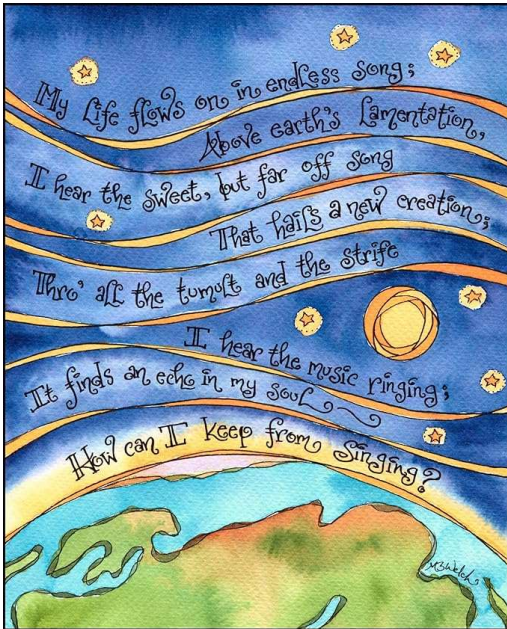 My Life flows on in endless song;
Above earth's lamentation,
I hear the sweet, but far off song
That hails a new creation;
Thro' all the tumult and the strife
I hear the music ringing;
It finds an echo in my soul
How can I keep from singing?
MBWelch